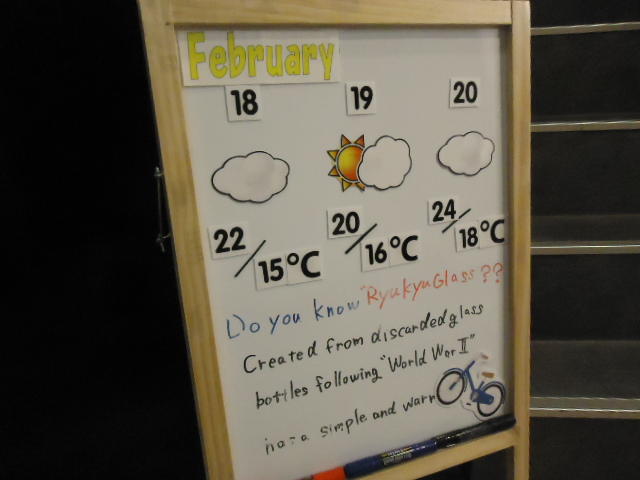 February
18 19 20
22/15°C 20/16°C 24/18°C
Do you know "RyukyuGlass??
Created from discarded glass
bottles following "World Wor II"
a simple and warm